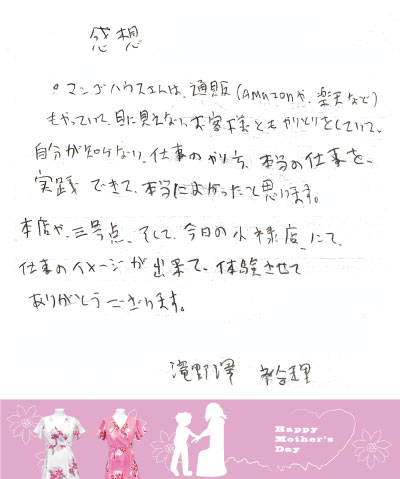 感想
。マンゴハウスさんは、通販(Amazonや、楽天など)
もやっていて、目に見えないお客様ともやりとりをしていて、
自分が知らない、仕事のやり方、本当の仕事を、
実践できて、本当によかったと思います。
本店や、三号点、そして、今日の小禄店、にて、
仕事のイメージが出来て、体験させて
ありがとうございます。
濱野澤 裕理
Happy
Mother's
Day